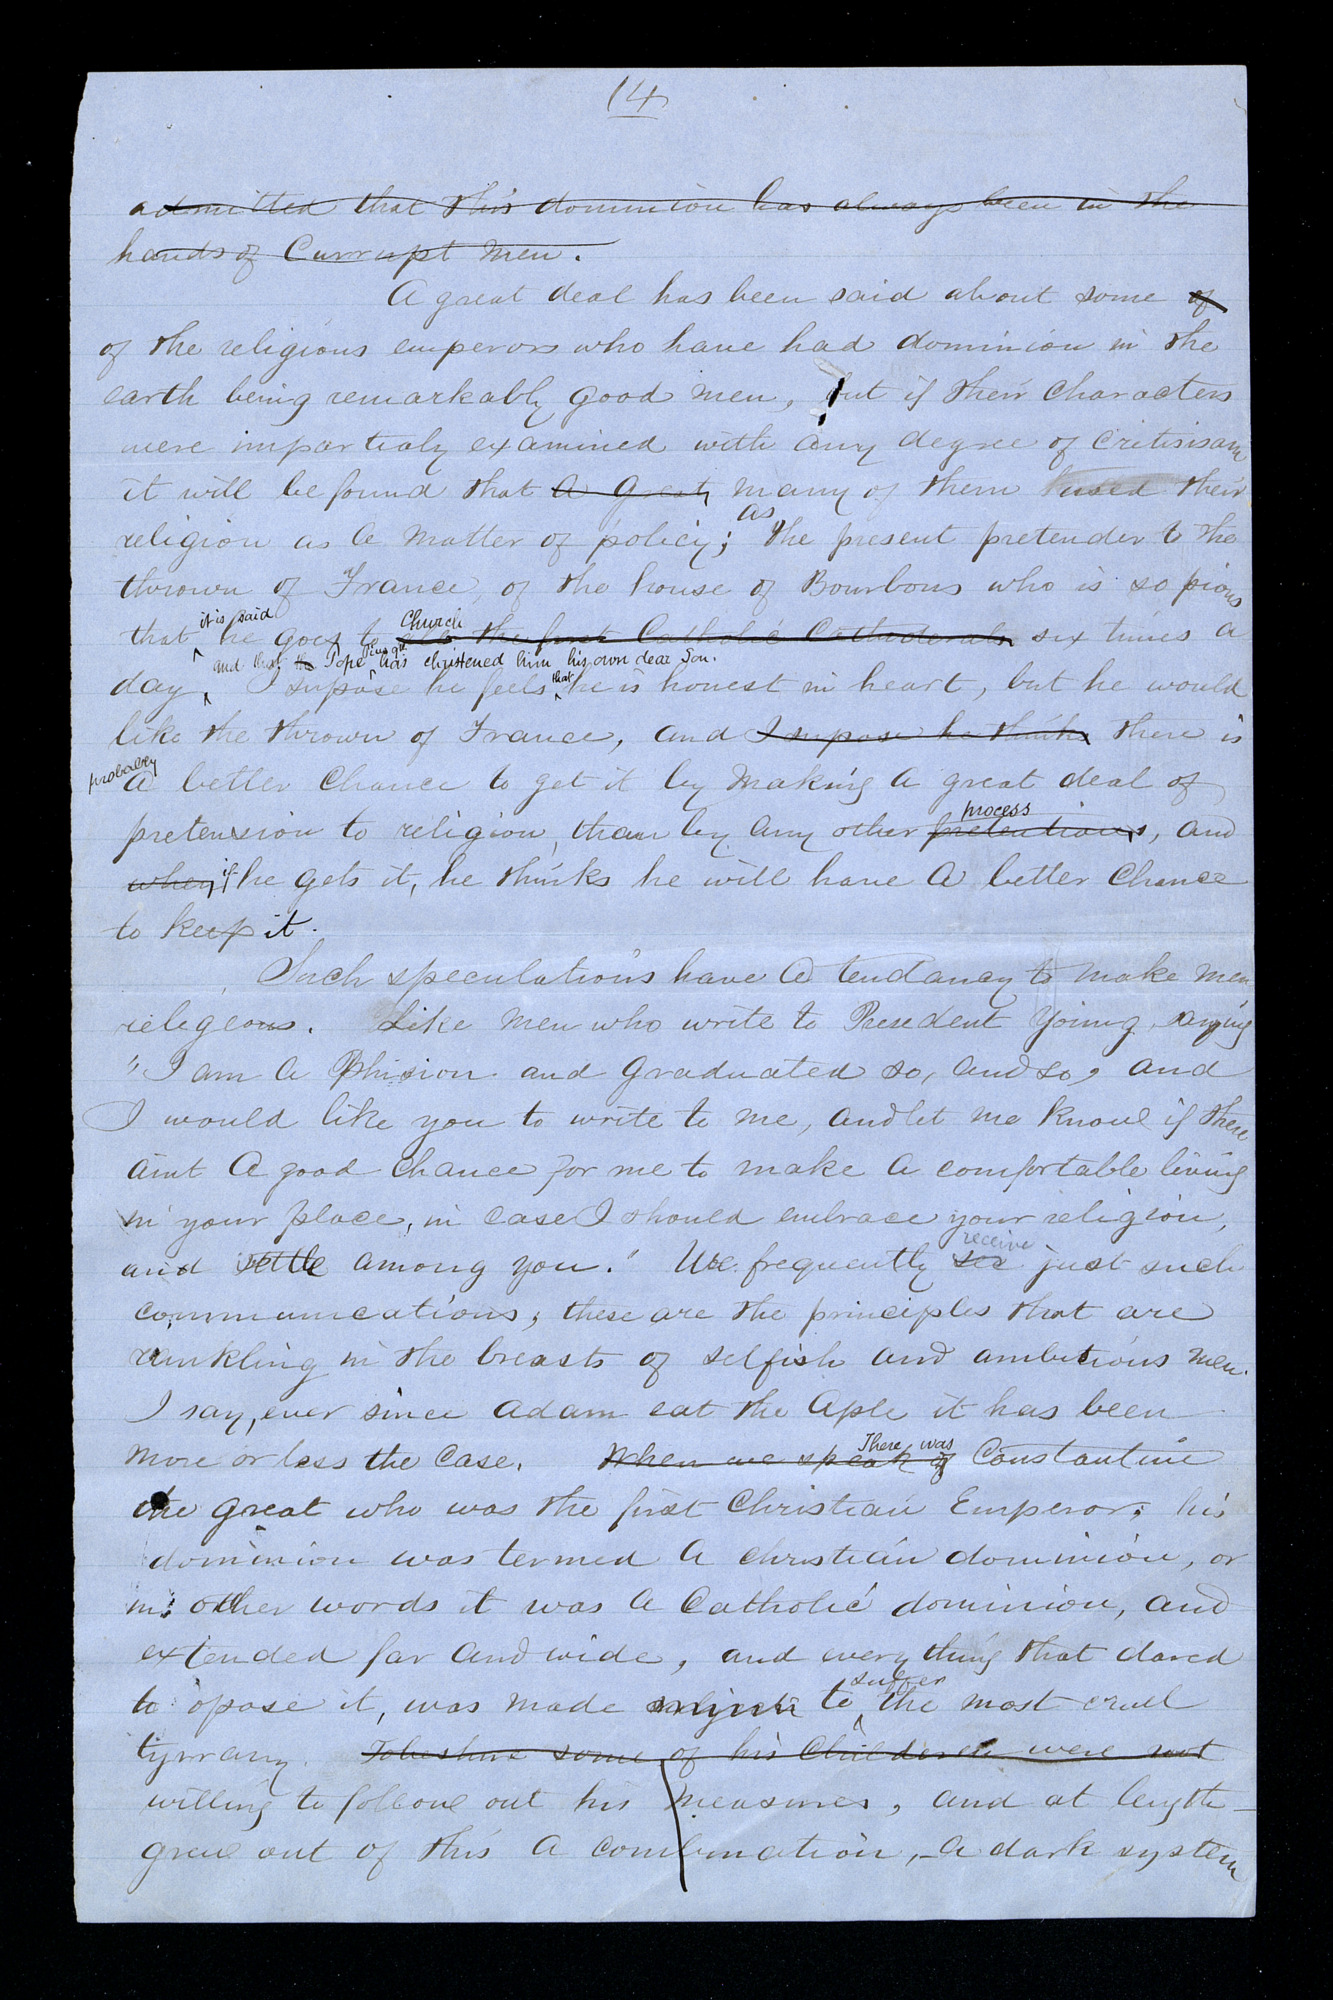 14
admitted that this dominion has always been in the
hands of Currupt men.
A great deal has been said about some of
of the religious emperors who have had dominion in the
earth being remarkably good men, but if their characters
were impartialy examined with any degree of critisisam
it will be found that a great many of them used their
as
religion as a matter of policy; the present pretender to the
thrown of France, of the house of Bourbons who is so pious
it is said Church
that he goes to the first Catholic Cathederals six times a
and that the Pope has christened him his own dear Son.
day, I supose he feels that he is honest in heart, but he would
like the thrown of France, and I supose he thinks there is
probabley
a better chance to get it by making a great deal of
process
pretension to religion, than by any other pretentions, and
when if he gets it, he thinks he will have a better chance
to keep it.
Such speculations have a tendancy to make men
religeous. Like men who write to Presedent Young saying
"I am a Phision and graduated so, and so, and
I would like you to write to me, and let me know if there
aint a good chance for me to make a comfortable living
in your place, in case I should embrace your religion,
receive
and settle among you." We frequently see just such
communications; these are the principles that are
rankling in the breasts of selfish and ambitious men.
I say, ever since Adam eat the Aple it has been
There was
more or less the case. When we speak of Constantine
the great who was the first Christian Emperor; his
dominion was termed a christian dominion, or
in other words it was a Catholic dominion, and
extended far and wide, and every thing that dared
suffer
to opose it, was made subject to the most cruel
tyrrany. To be shure some of his Childeren were not
willing to follow out his measures, and at length
grew out of this a combination, a dark system